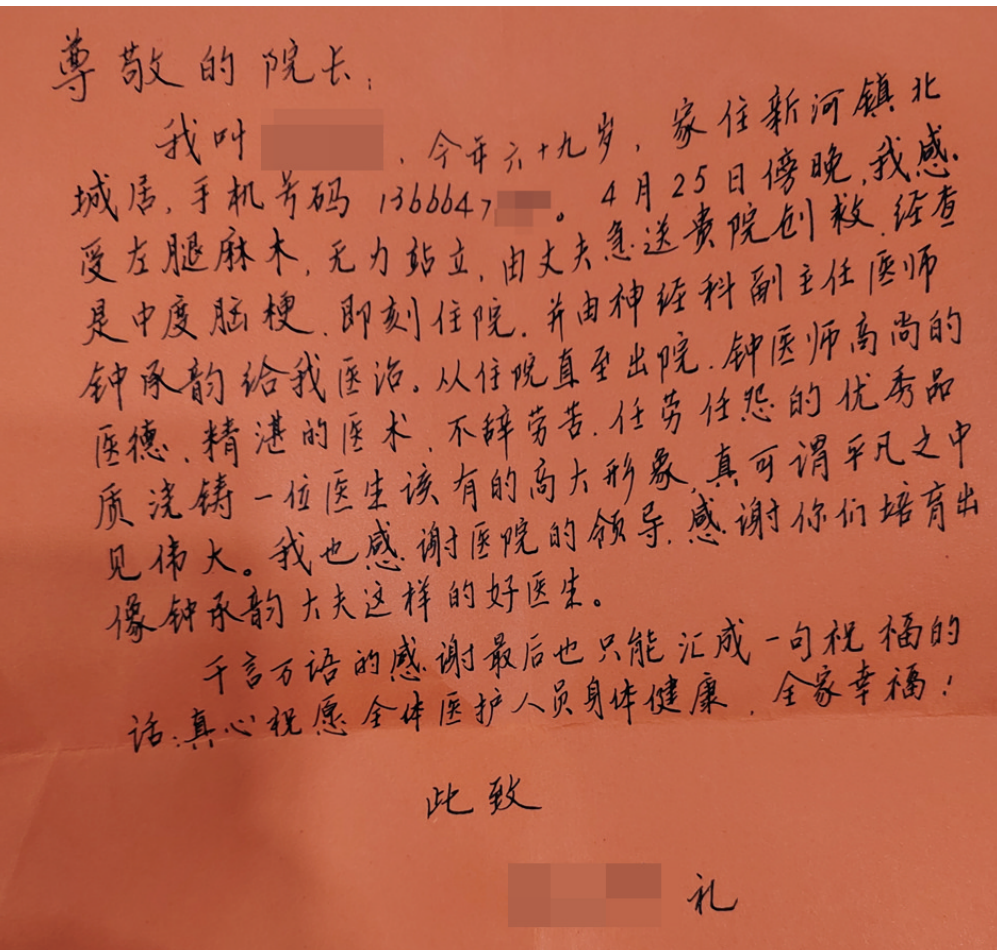 尊敬的院长:
我叫 ,今年六十九岁,家住新河镇北
城居,手机号码 1366647 。4月25日傍晚,我感
受左腿麻木,无力站立,由丈夫急送贵院创救,经查
是中度脑梗,即刻住院,并由神经科副主任医师
钟承韵给我医治。从住院直至出院,钟医师高尚的
医德、精湛的医术、不辞劳苦、任劳任怨的优秀品
质浇铸一位医生该有的高大形象,真可谓平凡之中
见伟大。我也感谢医院的领导,感谢你们培育出
像钟承韵大夫这样的好医生。
千言万语的感谢最后也只能汇成一句祝福的
话:真心祝愿全体医护人员身体健康,全家幸福!
此致
礼